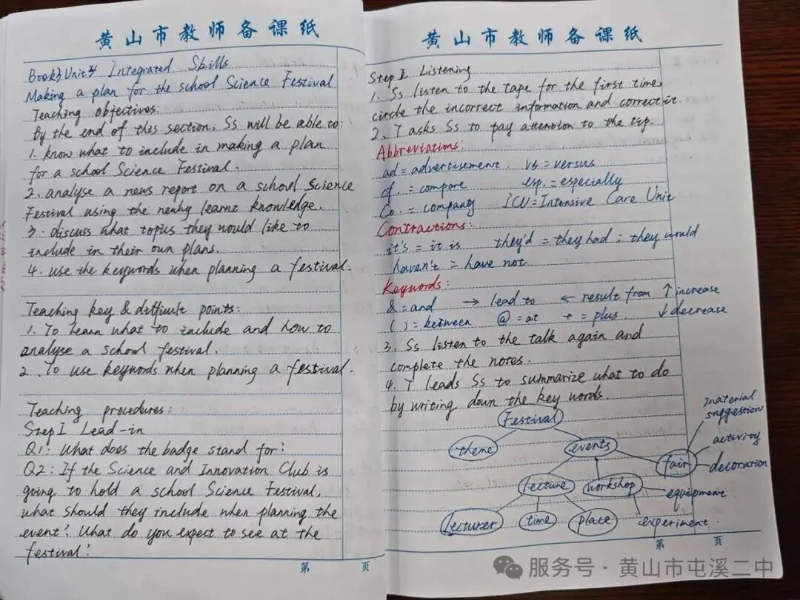 黄山市教师备课纸
Book3 Unit4 Integrated Skills
Making a plan for the school Science Festival
Teaching objectives:
By the end of this section, Ss will be able to:
1. know what to include in making a plan
for a school Science Festival.
2. analyse a news report on a school Science
Festival using the newly learnt knowledge.
3. discuss what topics they would like to
include in their own plans.
4. use the keywords when planning a festival.
Teaching key & difficult points:
1. To learn what to include and how to
analyse a school festival.
2. To use keywords when planning a festival.
Teaching procedures:
Step I Lead-in
Q1: What does the badge stand for?
Q2: If the Science and Innovation Club is
going to hold a school Science Festival,
what should they include when planning the
event? What do you expect to see at the
festival?
第 页
黄山市教师备课纸
Step II Listening
1. Ss listen to the tape for the first time,
circle the incorrect information and correct it.
2. T asks Ss to pay attention to the tip.
Abbreviations:
ad = advertisement vs = versus
cf. = compare esp. = especially
Co. = company ICU = Intensive Care Unit
Contractions:
it's = it is they'd = they had; they would
haven't = have not
Keywords:
& = and → lead to ← result from ↑ increase
( ) = between @ = at + = plus ↓ decrease
3. Ss listen to the talk again and
complete the notes.
4. T leads Ss to summarize what to do
by writing down the key words.
Festival
theme events fair
material
suggestion
activity
decoration
lecture workshop
equipment
experiment
lecturer time place
第 页
服务号 · 黄山市屯溪二中